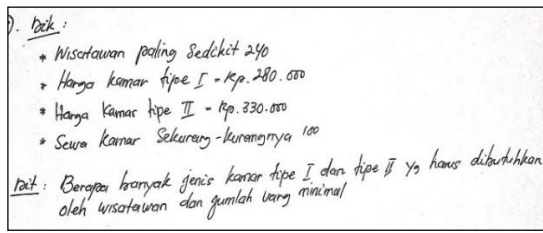 ). Dik :
* Wisatawan paling Sedikit 240
* Harga kamar tipe I = Rp. 280.000
* Harga kamar tipe II = Rp. 330.000
* Sewa kamar Sekurang-kurangnya 100
Dit : Berapa banyak jenis kamar tipe I dan tipe II yg harus dibutuhkan
oleh wisatawan dan jumlah uang minimal